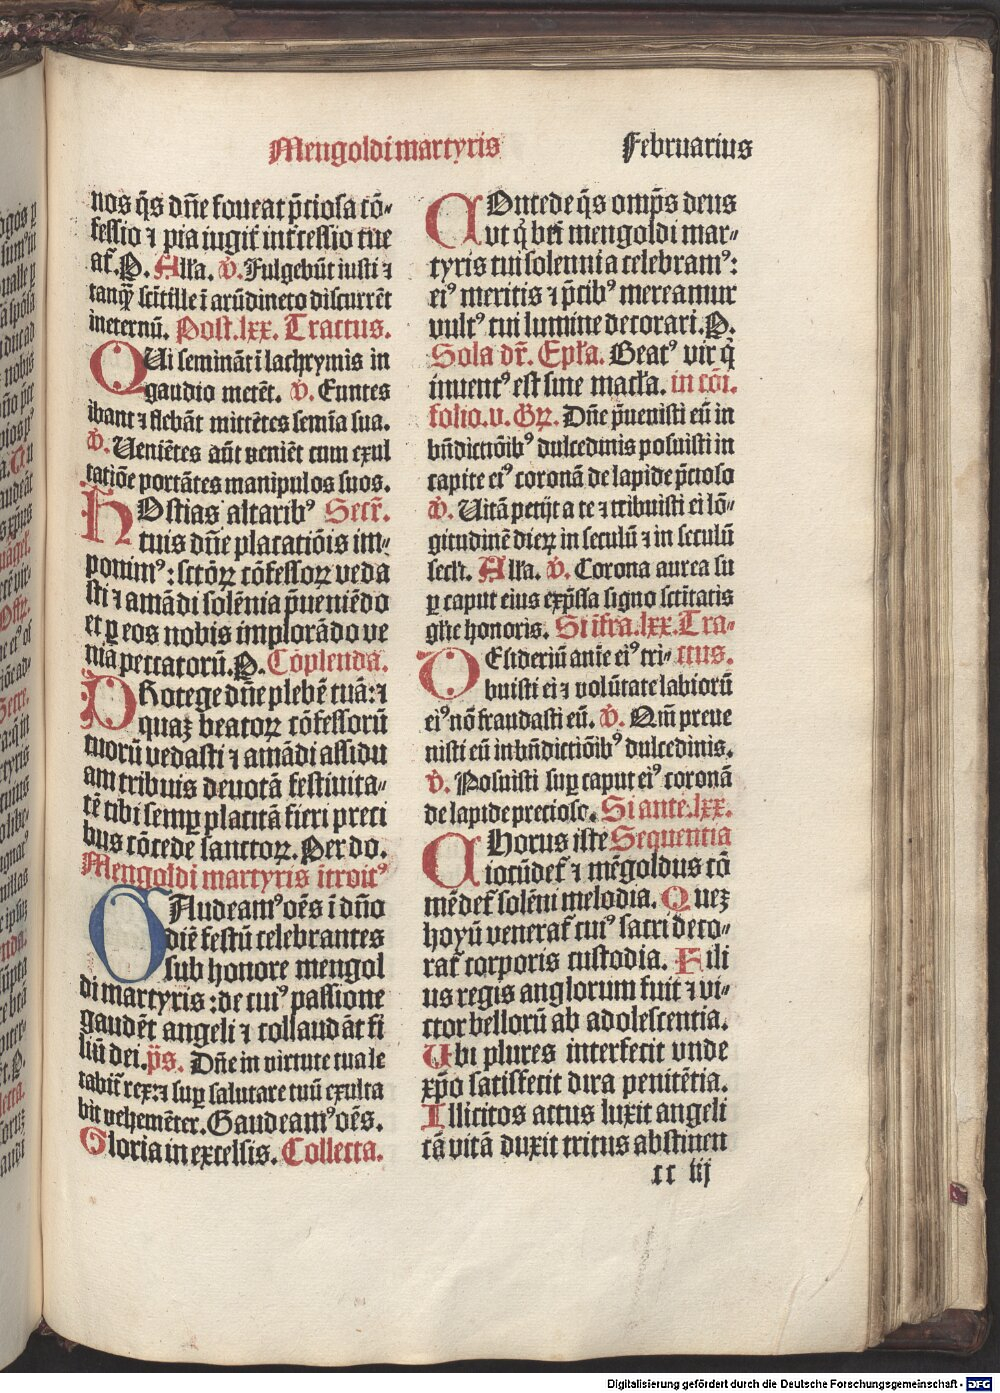 Mengoldi martyris
Februarius
nos q̄s dn̄e foueat p̄ciosa cō⸗
fessio ⁊ pia iugit̄ int̄cessio tue
at̄. P. Alľa. v̄. Fulgebūt iusti ⁊
tanq̄ scītille ī arūdineto discurrēt
ineternū. Post.lxx. Tractus.
QUi seminātī lachrymis in
gaudio metēt. v̄. Euntes
ibant ⁊ flebāt mittētes semīa sua.
v̄. Ueniētes aūt veniēt cum exul
tatiōe portātes manipulos suos.
HOstias altarib⁹ Secr̄.
tuis dn̄e placatiōis im⸗
ponim⁹: sctōꝝ cōfessoꝝ veda
sti ⁊ amādi solēnia p̄ueniēdo
et ꝑ eos nobis implorādo ve
niā peccatorū. P. Cōplenda.
PRotege dn̄e plebē tuā: ⁊
quaꝫ beatoꝝ cōfessorū
tuorū vedasti ⁊ amādi assidu
am tribuis deuotā festiuita⸗
tē tibi semꝑ placitā fieri preci
bus cōcede sanctoꝝ. Per do.
Mengoldi martyris ītroit⁹
GAudeam⁹ oēs ī dn̄o
diē festū celebrantes
sub honore mengol
di martyris : de cui⁹ passione
gaudēt angeli ⁊ collaudāt fi
liū dei. p̄s. Dn̄e in virtute tua le
tabit̄ rex: ⁊ suꝑ salutare tuū exulta
bit vehemēter. Gaudeam⁹ oēs.
Gloria in excelsis. Collecta.
COncede q̄s omp̄s deus
vt q̇ bt̄i mengoldi mar⸗
tyris tui solennia celebram⁹:
ei⁹ meritis ⁊ p̄cib⁹ mereamur
vult⁹ tui lumine decorari. P.
Sola dr̄. Epľa. Beat⁹ vir q̇
inuent⁹ est sine macľa. in cōi.
folio.v. Gꝝ. Dn̄e p̄uenisti eū in
bn̄dictiōib⁹ dulcedinis posuisti in
capite ei⁹ coronā de lapide p̄cioso
v̄. Uitā petijt a te ⁊ tribuisti ei lō⸗
gitudinē dieꝝ in seculū ⁊ in seculū
secľi. Alľa. v̄. Corona aurea su
ꝑ caput eius exp̄ssa signo sctītatis
gľie honoris. Si īfra.lxx. Tra⸗
DEsideriū anīe ei⁹ tri⸗ ctus.
buisti ei ⁊ volūtate labiorū
ei⁹ nō fraudasti eū. v̄. Qm̄ preue
nisti eū in bn̄dictiōib⁹ dulcedinis.
v̄. Posuisti suꝑ caput ei⁹ coronā
de lapide precioso. Si ante.lxx.
CHorus iste Sequentia
iocūdet̄ ⁊ mēgoldus cō
mēdet̄ solēni melodia. Queꝫ
hoyū venerat̄ cui⁹ sacri deco⸗
rat̄ corporis custodia. Fili
us regis anglorum fuit ⁊ vi⸗
ctor bellorū ab adolescentia.
Ubi plures interfecit vnde
xp̄o satisfecit dira penitētia.
Illicitos actus luxit angeli
cā vitā duxit tritus abstinen
cc iij
Digitalisierung gefördert durch die Deutsche Forschungsgemeinschaft - DFG